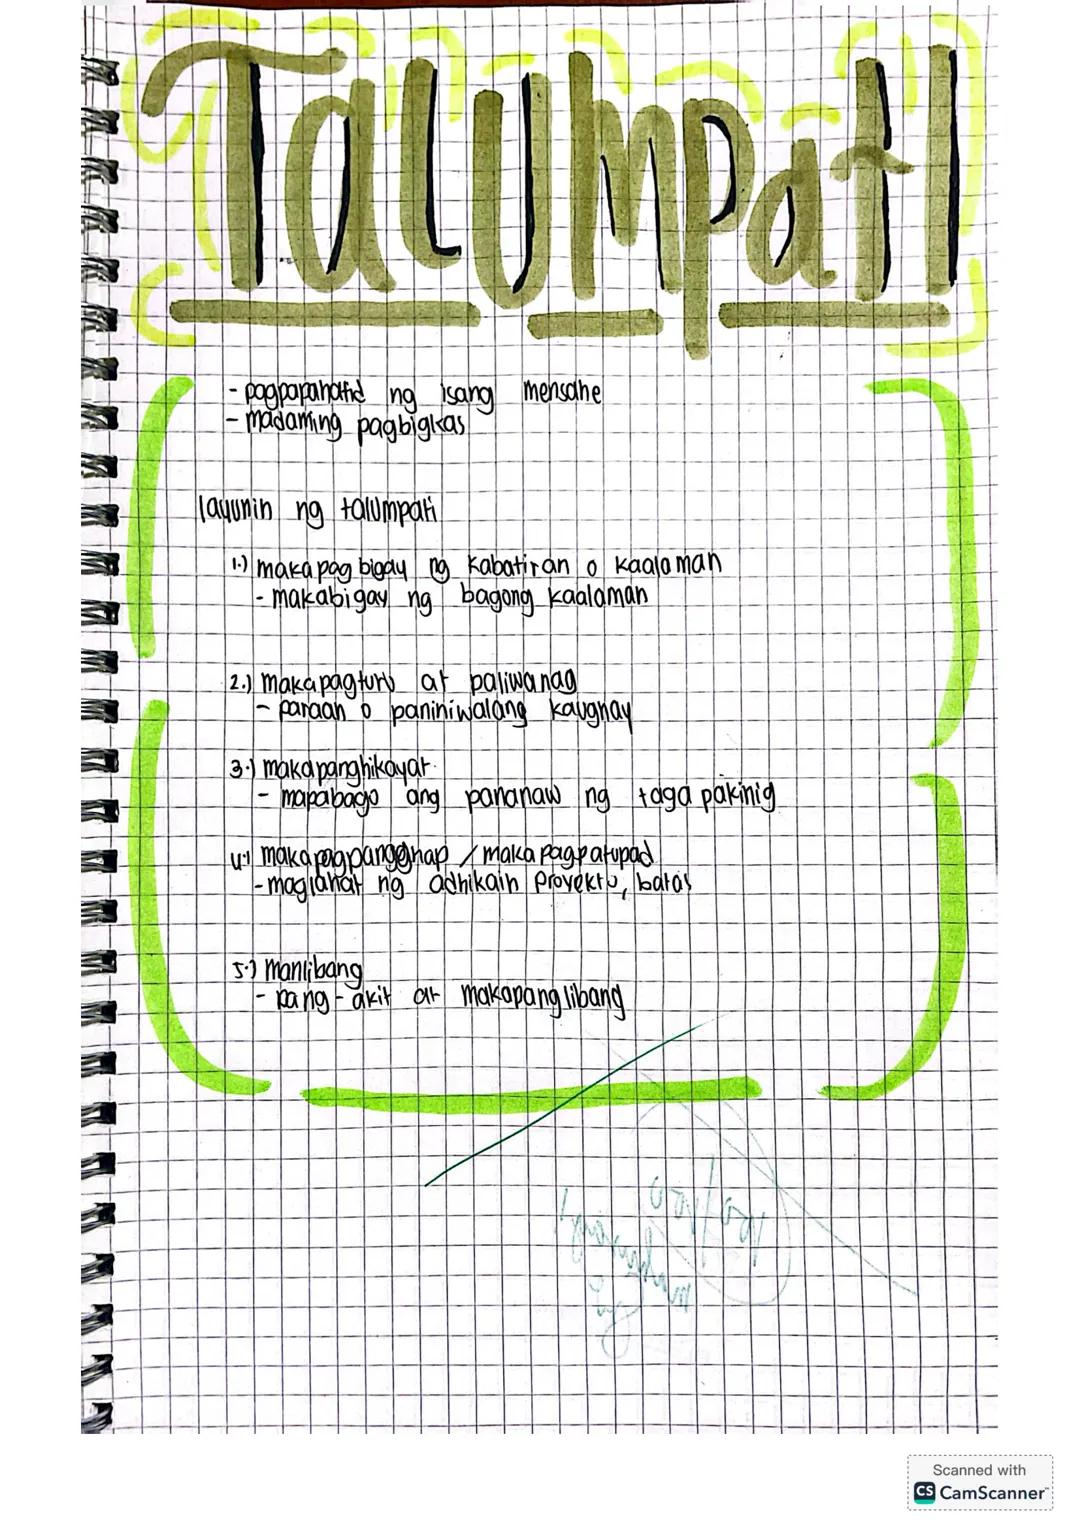 TalUmpatI
- pagpapahatid ng isang mensahe
- madaming pagbigkas
layunin ng talumpati
1.) makapagbigay ng kabatiran o kaalaman
- makabigay ng bagong kaalaman
2.) makapagturo at paliwanag
- paraan o paniniwalang kaugnay
3.) makapanghikayat.
- mapabago ang pananaw ng taga pakinig
4.) makapagpangganap / makapagpatupad
- maglahat ng adhikain proyekto, batas
5.) manlibang
- pang-akit at makapanglibang
100/100
Scanned with
CS CamScanner